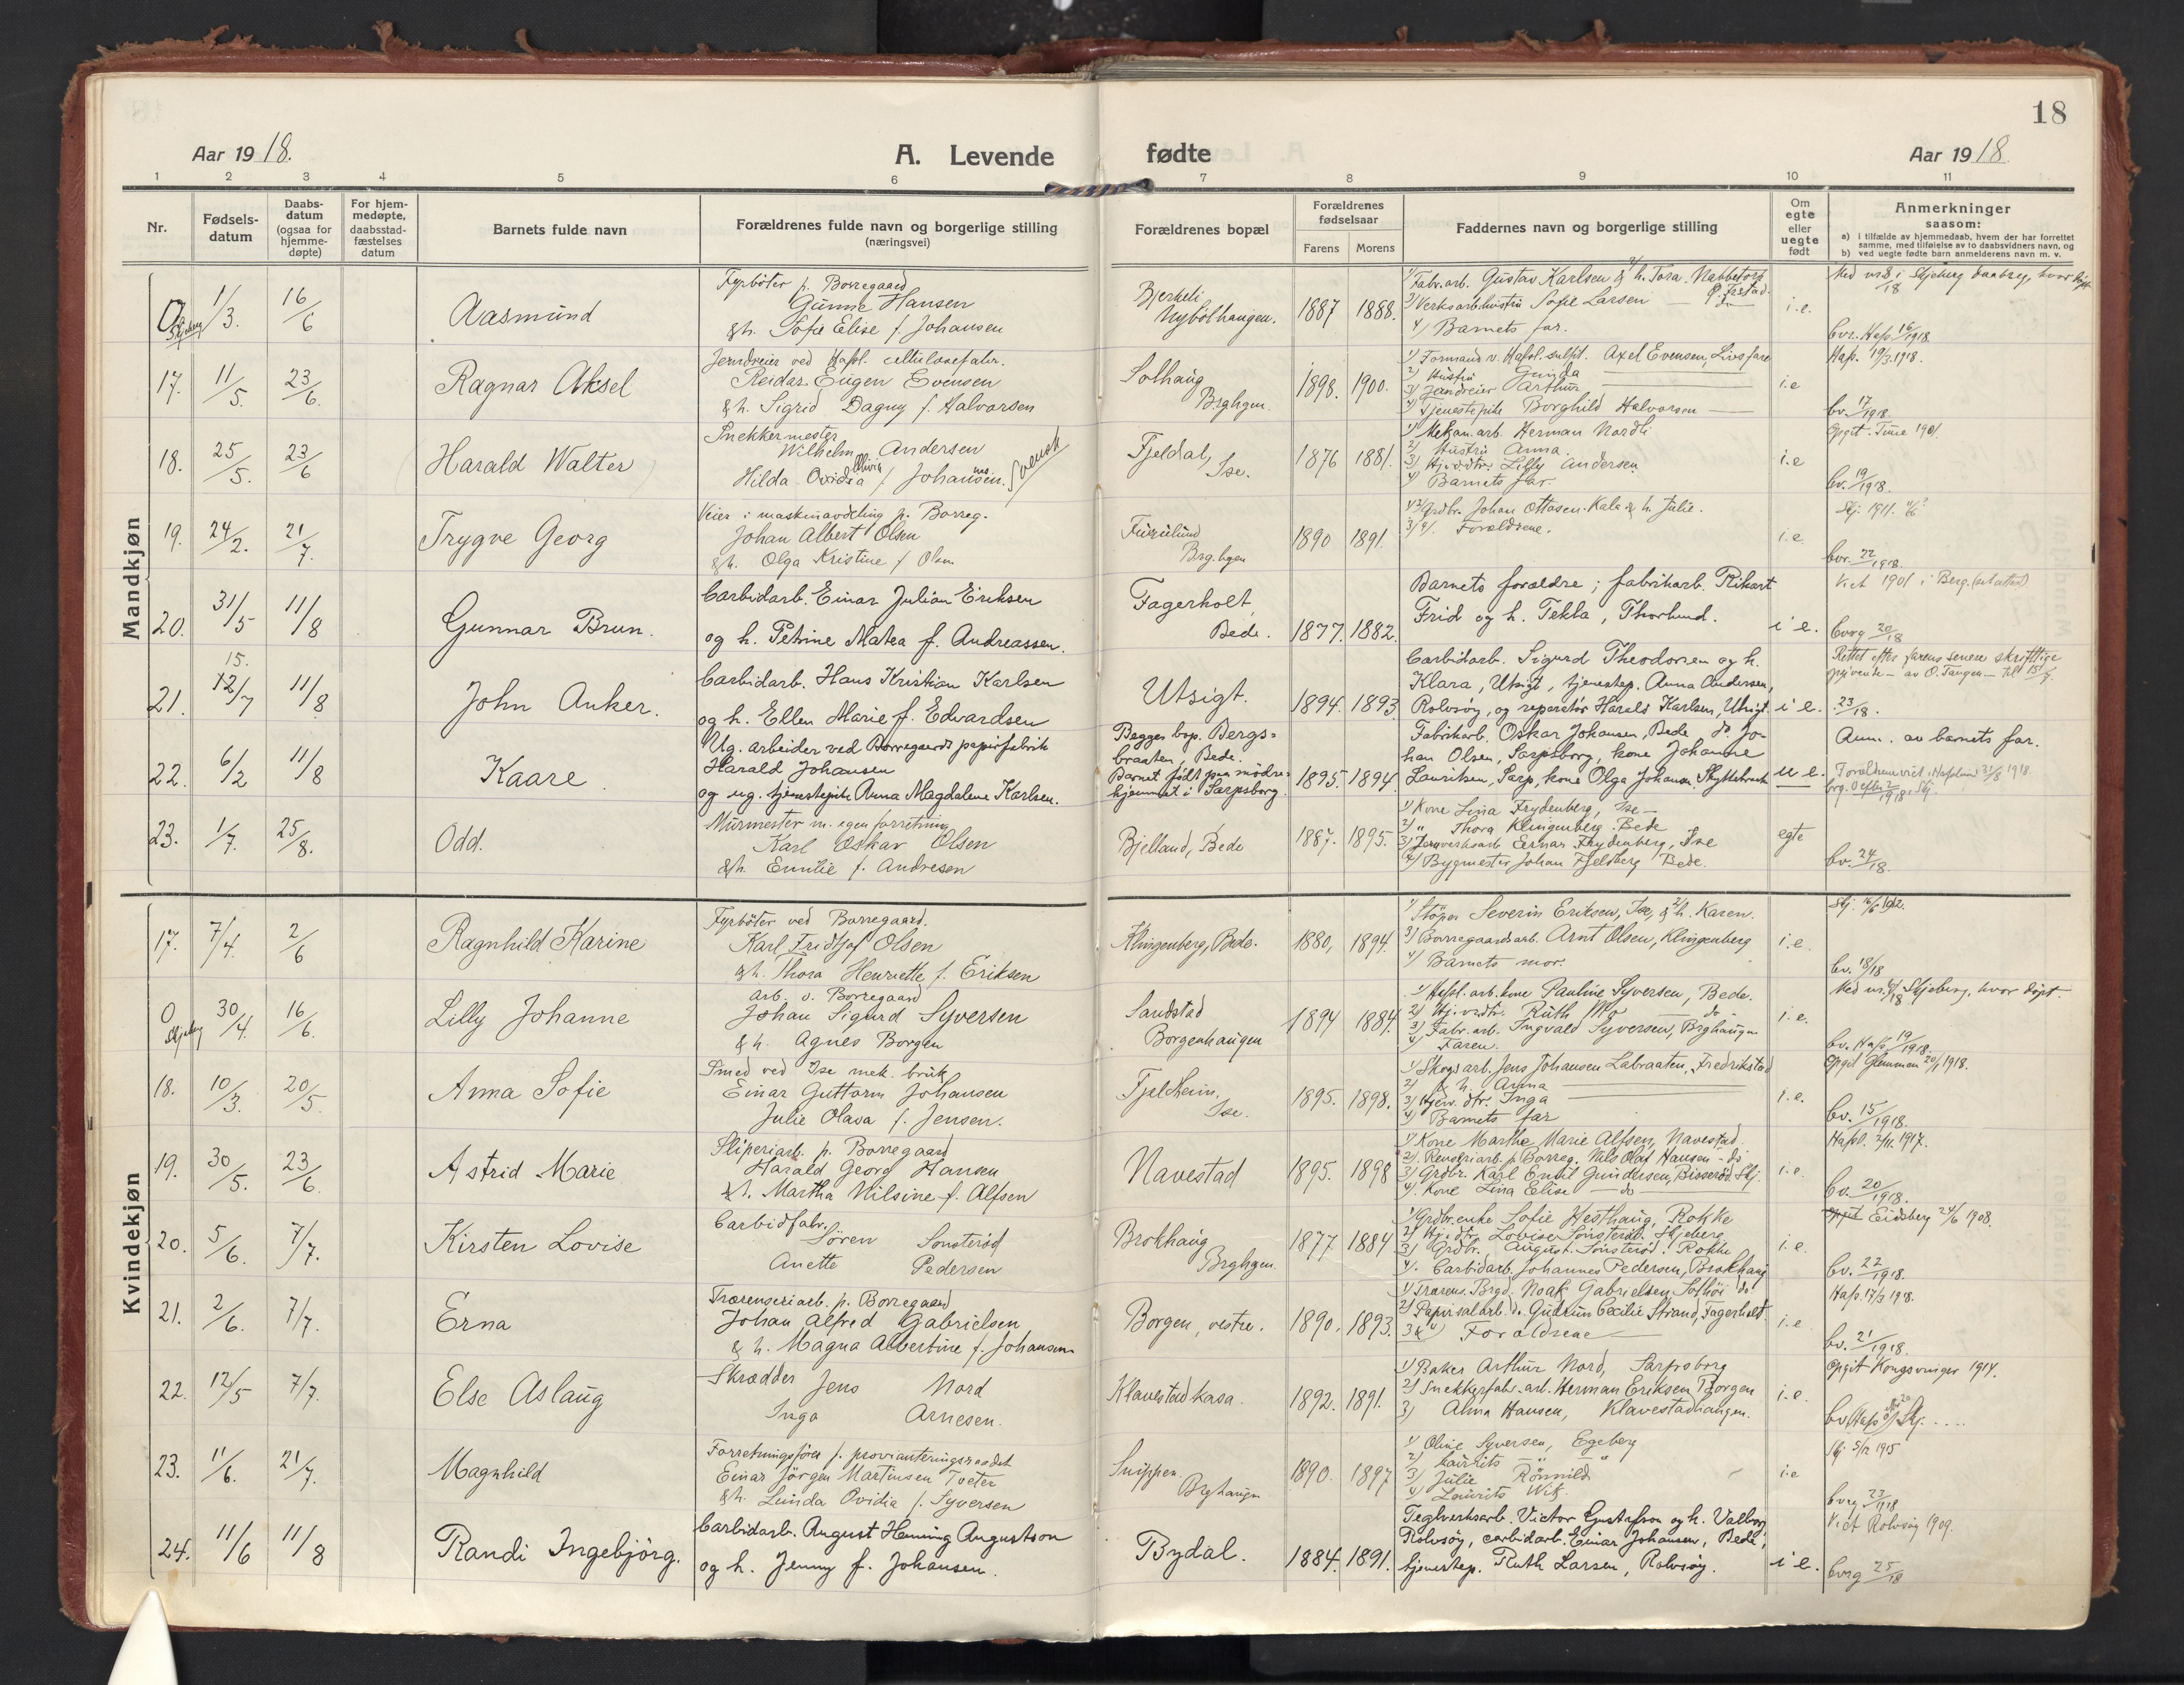 18
Aar 1918.
A. Levende fødte
Aar 1918.
1 2 3 4 5 6 7 8 9 10 11
Nr.
Fødsels-
datum
Daabs-
datum
(ogsaa for
hjemme-
døpte)
For hjem-
medøpte,
daabsstad-
fæstelses
datum
Barnets fulde navn
Forældrenes fulde navn og borgerlige stilling
(næringsvei)
Forældrenes bopæl
Forældrenes
fødselsaar
Farens Morens
Faddernes navn og borgerlige stilling
Om
egte
eller
uegte
født
Anmerkninger
saasom:
a) i tilfælde av hjemmedaab, hvem der har forrettet
samme, med tilføielse av to daabsvidners navn, og
b) ved uegte fødte barn anmelderens navn m. v.
Mandkjøn
0 Skjeberg 1/3. 16/6 Aasmund
Fyrbøter p. Borregaard
Gunne Hansen
& h. Sofie Elise f. Johansen
Bjerkeli
Nybölhaugen. 1887 1888.
1/ Fabr.arb. Gustav Karlsen & 2/ h. Tora. Nabbetorp
3/ Verksarb.hustru Sofie Larsen
4/ Barnets far.
i.e.
bvr. Hafs. 16/1918.
17. 11/5. 23/6. Ragnar Aksel
Jerndreier ved Hafsl. cellulosefabr.
Reidar Eugen Evensen
& h. Sigrid Dagny f. Halvorsen
Solhaug
Brghgen. 1898. 1900.
1/ Formand v. Hafsl. sulfit. Axel Evensen,
2/ Hustru Gunda
3/ Jerndreier Arthur
4/ Tjenestepike Borghild Halvorsen
i.e
Hafs. 19/3.1918.
bv. 17/1918.
18. 25/5. 23/6 Harald Walter
Snekkermester
Wilhelm Andersen
Hilda Ovidia Olivia f. Johansen. Svensk
Fjeldal,
Ise. 1876 1881.
1/ Mekan. arb. Herman Nordli
2/ Hustru Anna.
3/ Hjv.dtr. Lilly Andersen
4/ Barnets far
i.e
Opgit. Tune 1901.
bv. 19/1918.
19. 24/2. 21/7. Trygve Georg
Veier i maskinavdeling p. Borreg.
Johan Albert Olsen
& h. Olga Kristine f. Olsen
Furulund
Brg.hgen 1890 1891.
1/2/ Grdbr. Johan Ottosen. Kala & h. Julie.
3/4/. Forældrene.
i.e.
Skj. 1911.
bvr. 22/1918.
20. 31/5 11/8 Gunnar Brun.
Carbidarb. Einar Julian Eriksen
og h. Petrine Matea f. Andreassen.
Fagerholt,
Bede. 1877. 1882.
Barnets forældre; fabrikarb. Rikart
Frid og h. Tekla, Thorlund.
i e.
Viet 1901 i Berg.
bvrg 20/18
21. 15. 12/7 11/8 John Anker.
Carbidarb. Hans Kristian Karlsen
og h. Ellen Marie f. Edvardsen
Utsigt. 1894. 1893.
Carbidarb. Sigurd Theodorsen og h.
Klara, Utsigt, tjenestep. Anna Andersen,
Rolvsøy, og reparatør Harald Karlsen, Utsigt.
i e.
Rettet efter farens senere skriftlige
opgivende – av O. Tangen – til 15/7.
23/18.
22. 6/2 11/8 Kaare.
Ug. arbeider ved Borregaards papirfabrik
Harald Johansen
og ug. tjenestepike Anna Magdalene Karlsen.
Begges bop. Bergs-
braaten, Bede.
Barnet født paa mødre-
hjemmet i Sarpsborg. 1895. 1894.
Fabrikarb. Oskar Johansen, Bede do Jo-
han Olsen, Sarpsborg, kone Johanne
Lauritsen, Sarp, kone Olga Johansen
u e.
Anm. av barnets far.
Forældrene viet i Hafslund 31/8 1918.
23. 1/7. 25/8. Odd.
Murmester m. egen forretning
Karl Oskar Olsen
& h. Emilie f. Andresen
Bjelland, Bede 1887. 1895.
1/ Kone Lina Frydenberg, Ise –
2/ " Thora Klingenberg. Bede
3/ Jernverksarb Eernar Frydenberg, Ise
4/ Bygmester Johan Fjeldberg Bede.
egte
bv. 24/18.
Kvindekjøn
17. 7/4. 2/6 Ragnhild Karine
Fyrbøter ved Borregaard.
Karl Fridtjof Olsen
& h. Thora Henriette f. Eriksen
Klingenberg, Bede. 1880, 1894.
1/ Støper Severin Eriksen, Ise, & 2/ h. Karen.
3/ Borregaardsarb. Arnt Olsen, Klingenberg
4/ Barnets mor.
i.e.
bv. 18/18
0 Skjeberg 30/4. 16/6. Lilly Johanne
arb. v. Borregaard
Johan Sigurd Syversen
& h. Agnes Borgen
Sandstad
Borgenhaugen 1894 1884.
1/ Hafsl. arb. kone Pauline Syversen, Bede.
2/ Hj.v.dtr. Ruth Mo – do –
3/ Fabr. arb. Ingvald Syversen, Brghaugen
4/ Faren.
i.e.
Skjeberg, hvor døpt.
bv. Hafs 19/1918.
18. 10/3. 20/5. Anna Sofie
Smed ved Ise mek. bruk
Einar Guttorm Johansen
Julie Olava f. Jensen.
Fjeldheim,
Ise. 1895. 1898.
1/ Skogsarb. Jens Johansen Labraaten, Fredrikstad
2/ & h. Anna
3/ Hjev. dtr. Inga
4/ Barnets far
i.e.
Opgit Glemmen 20/1 1918.
bv. 15/1918.
19. 30/5. 23/6. Astrid Marie
Sliperiarb. p. Borregaard
Harald Georg Hansen
& h. Martha Nilsine f. Alfsen
Navestad 1895. 1898
1/ Kone Marthe Marie Alfsen, Navestad
2/. Renseriarb. p. Borreg. Nils Olaf Hansen – do
3/ Grdbr. Karl Emil Gundersen, Bisserød Skj.
4/. Kone Lina Elise – do –
i.e.
Hafsl. 2/11 1917.
bv. 20/1918.
20. 5/6. 7/7. Kirsten Lovise
Carbidfabr.
Sören Sonsteröd
Anette Pedersen
Brokhaug
Brghgen. 1877 1884
1/ Grdbr.enke Sofie Hesthaug, Rokke
2/ Hj.dtr. Lovise Sönsteröd. Skjeberg
3/ Grdbr. August Sönsteröd. Rokke
4/. Carbidarb. Johannes Pedersen, Brokhaug
i.e.
Opgit Eidsberg 24/6 1908.
bv. 22/1918.
21. 2/6. 7/7. Erna
Trærenseriarb. p. Borregaard
Johan Alfred Gabrielsen
& h. Magna Albertine f. Johansen
Borgen, vestre. 1890. 1893.
1/ Trærens. Brgd. Noak Gabrielsen, Solhöi do
2/ Papirsalarb. do. Gudrun Cecilie Strand, Fagerholt
3 & 4/ Forældrene
i.e
Hafs. 17/3 1918.
bv. 21/1918.
22. 12/5 7/7. Else Aslaug
Skrædder Jens Nord
Inga Arnesen.
Klavestadkasa. 1892. 1891.
1/ Baker Arthur Nord, Sarpsborg
2/ Snekkerfabr. arb. Herman Eriksen, Borgen
3/ Alma Hansen, Klavestadhaugen.
i.e.
Opgit Kongsvinger 1914.
23. 11/6. 21/7. Magnhild
Forretningsfører f. provianteringsraadet
Einar Jörgen Martinsen Tveter
& h. Lunda Ovidia f. Syversen
Snippen
Brghaugen 1890. 1897
1/ Oline Syversen, Egeberg
2/ Laurits – " – "
3/ Julie Rönnild
4/ Laurits Wik.
i.e
Skj 5/12 1915
bvrg 23/1918
24. 11/6 11/8 Randi Ingebjörg.
Carbidarb. August Henning Augustson
og h. Jenny f. Johansen.
Bydal. 1884. 1891.
Teglverksarb. Victor Gustafson og h. Valborg
Rolvsöy, carbidarb. Einar Johansen, Bede,
tjenestep. Ruth Larsen, Rolvsöy.
i e.
Viet Rolvsöy 1909.
bvrg 25/18